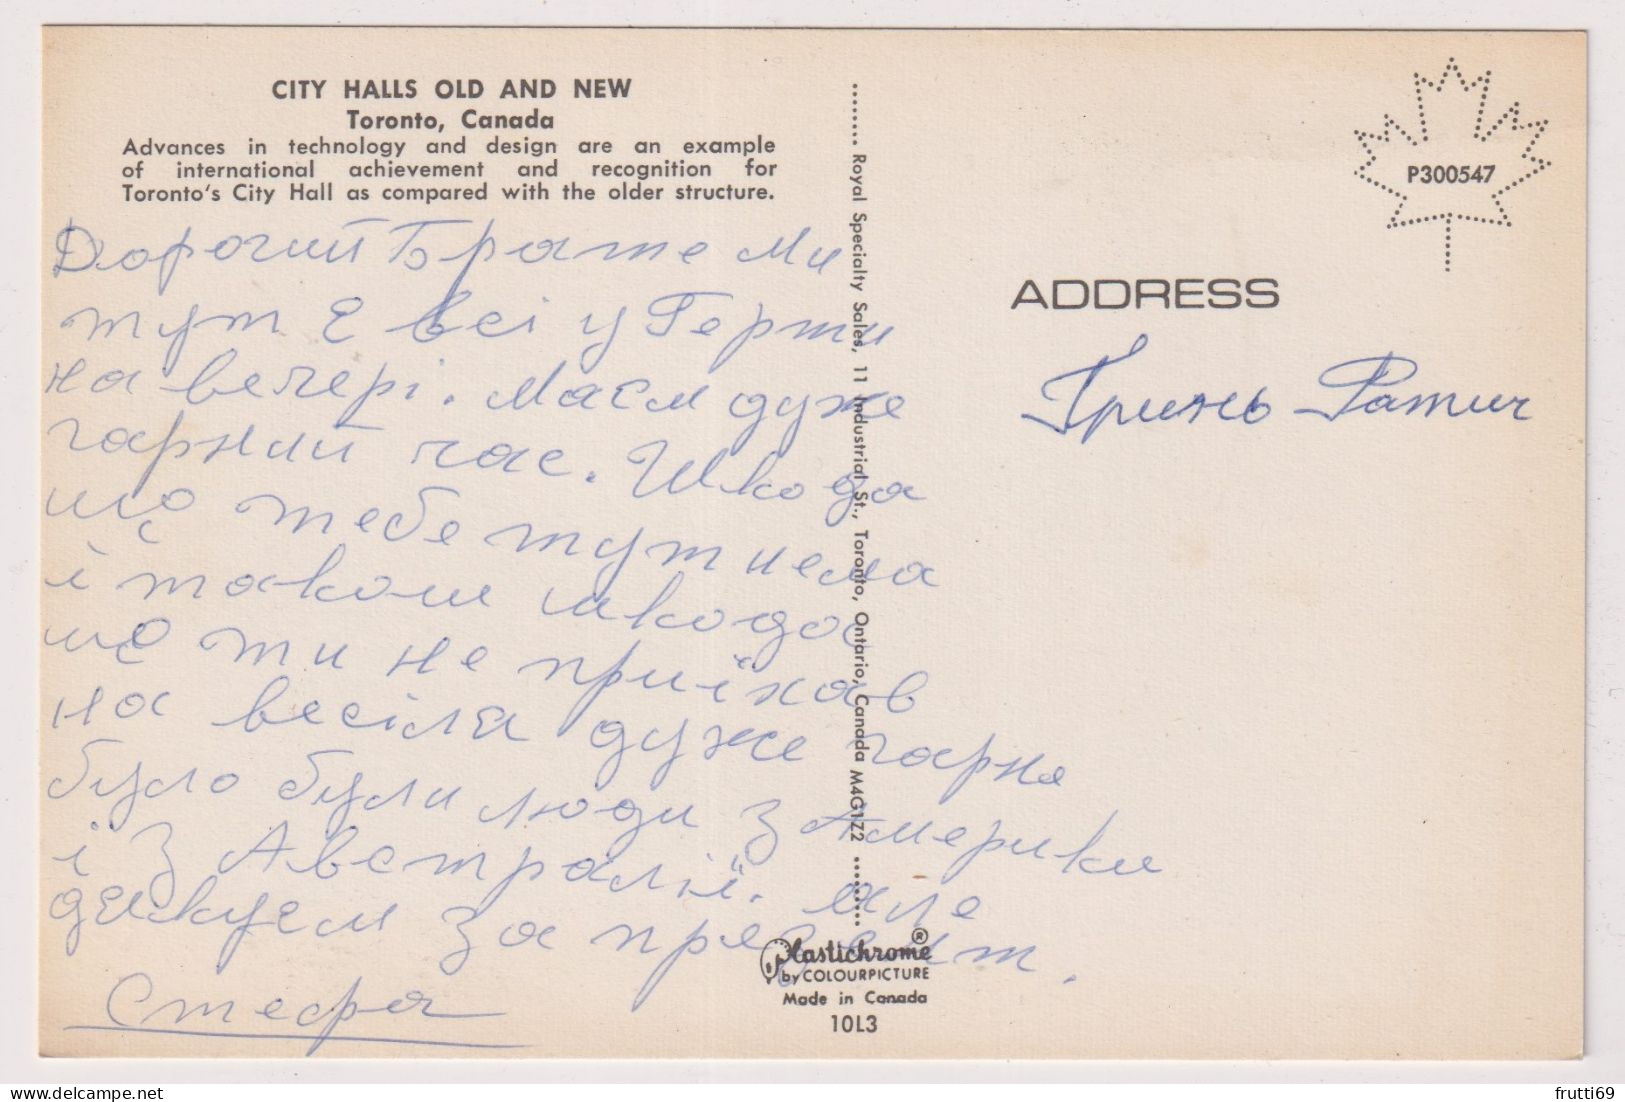 CITY HALLS OLD AND NEW
Toronto, Canada
Advances in technology and design are an example
of international achievement and recognition for
Toronto's City Hall as compared with the older structure.
Дорогий Брате Ми
тут є всі у Герти
на вечері. Маєм дуже
гарний час. Шкода
що тебе тут нема
і також шкода
що ти не приїхав
на весіля дуже гарно
було були люди з Америки
і з Австралії. Але
дякуєм за презент.
Стефа
Royal Specialty Sales, 11 Industrial St., Toronto, Ontario, Canada M4G1Z2
Plastichrome®
by COLOURPICTURE
Made in Canada
10L3
P300547
ADDRESS
Гринь Ратич
frutti69